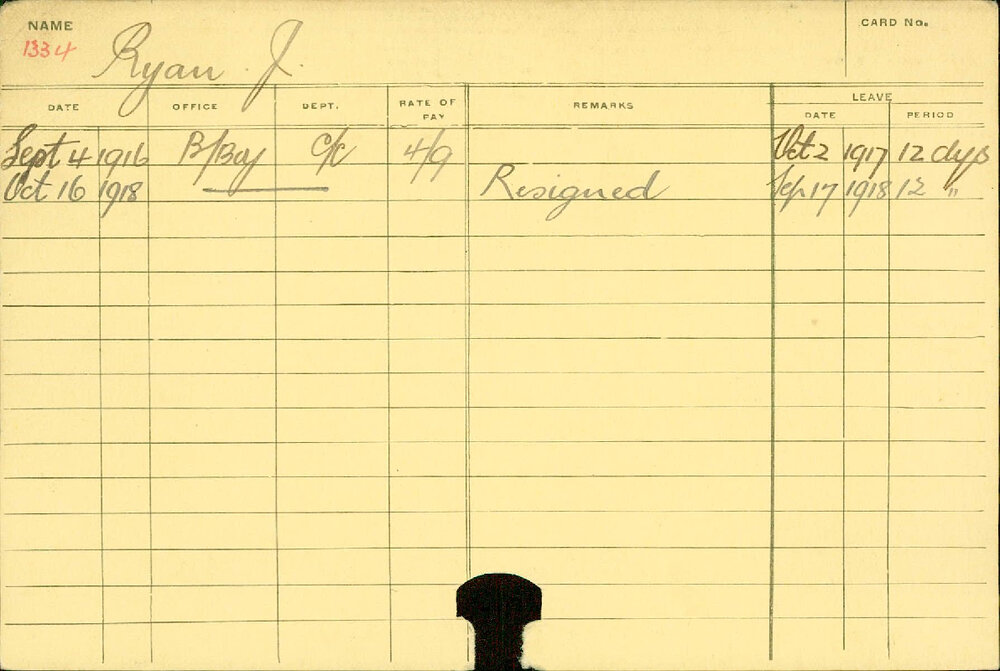 NAME
CARD No.
1334
Ryan J.
LEAVE
DATE OFFICE DEPT. RATE OF PAY REMARKS DATE PERIOD
Sept 4 1916 B/Boy C/C 4/9 Oct 2 1917 12 dys
Oct 16 1918 Resigned Sep 17 1918 12 "